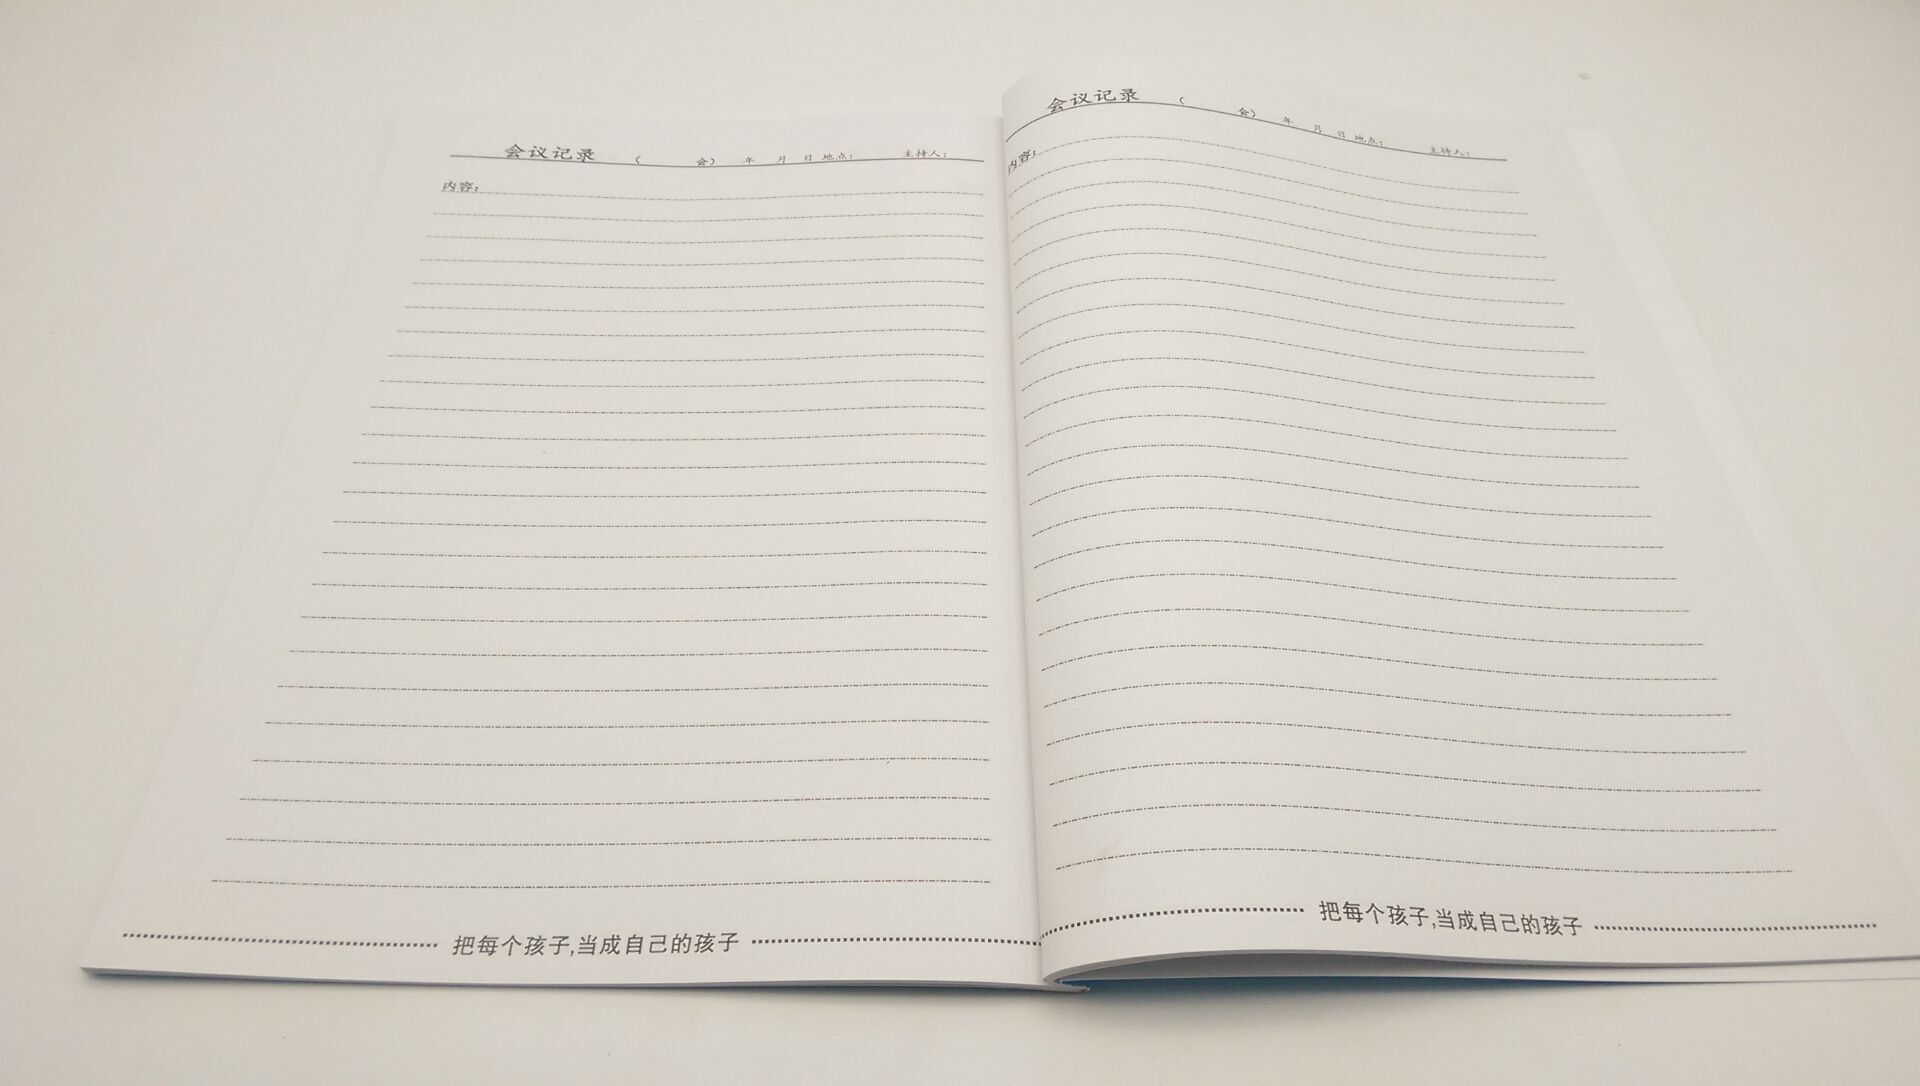 会议记录 （ 会） 年 月 日 地点： 主持人：
内容：
把每个孩子,当成自己的孩子
会议记录 （ 会） 年 月 日 地点： 主持人：
内容：
把每个孩子,当成自己的孩子